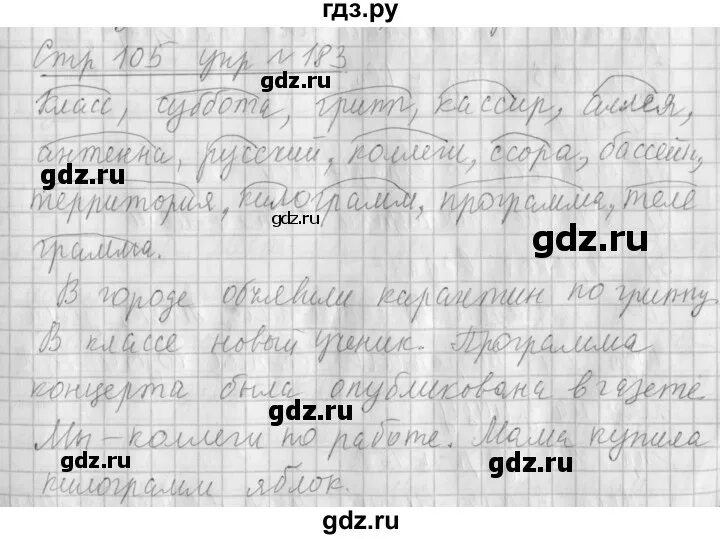 гдз.ру
Стр 105 упр № 183
gdz.ru
Класс, суббота, грипп, кассир, аллея,
антенна, русский, коллеги, ссора, бассейн,
gdz.ru
gdz.ru
территория, килограмм, программа, теле
gdz.ru
gdz.ru
грамма.
В городе объявили карантин по гриппу
В классе новый ученик. Программа
концерта была опубликована в газете.
gdz.ru
Мы – коллеги по работе. Мама купила
gdz.ru
gdz.ru
килограмм яблок.
gdz.ru